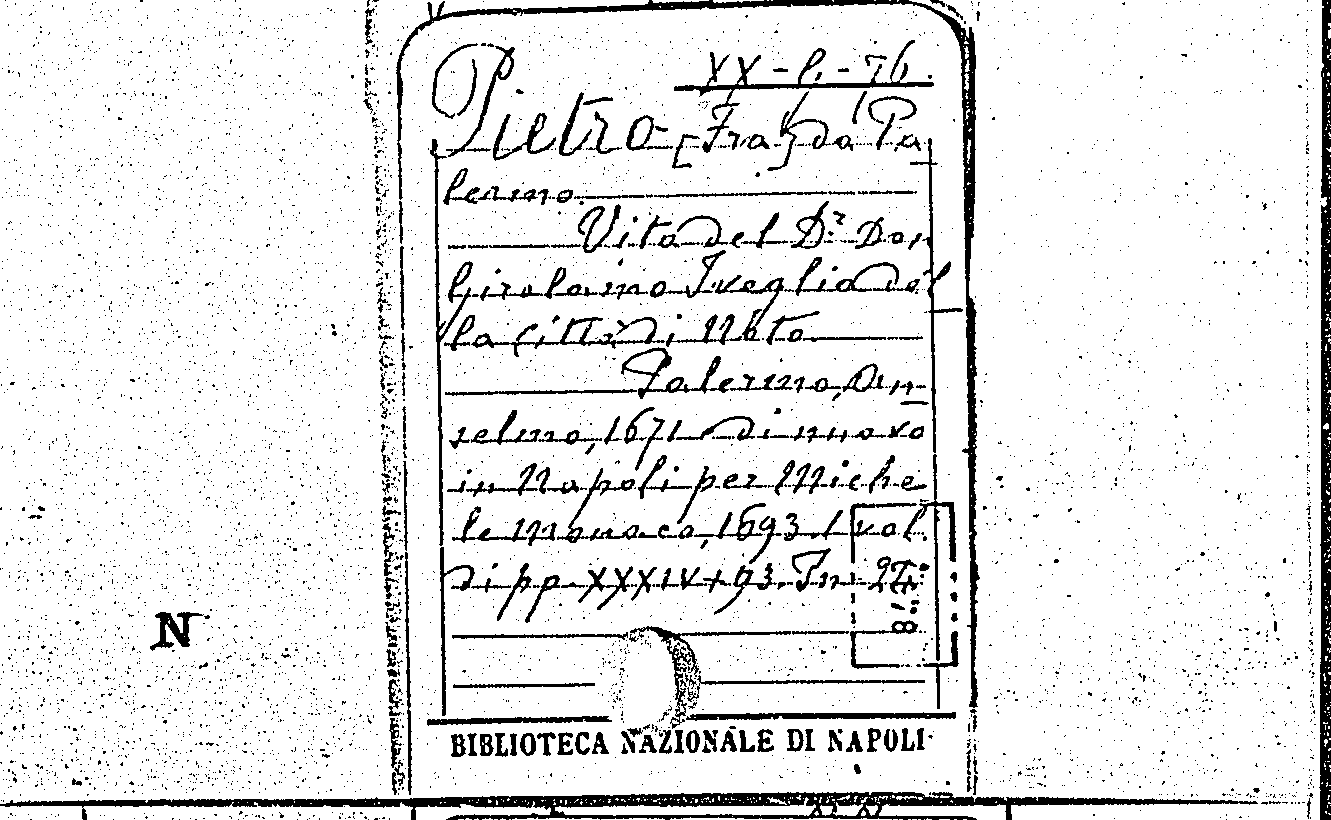 XX-C.-76.
Pietro [Fra] da Pa
lermo.
Vita del D.r Don
Girolamo Iveglia del
la città di Noto.
Palermo, An
selmo, 1671 di nuovo
in Napoli per Miche
le Monaco, 1693. 1 vol.
di pp. XXXIV+93. In 24.°
8.'
N
BIBLIOTECA NAZIONALE DI NAPOLI